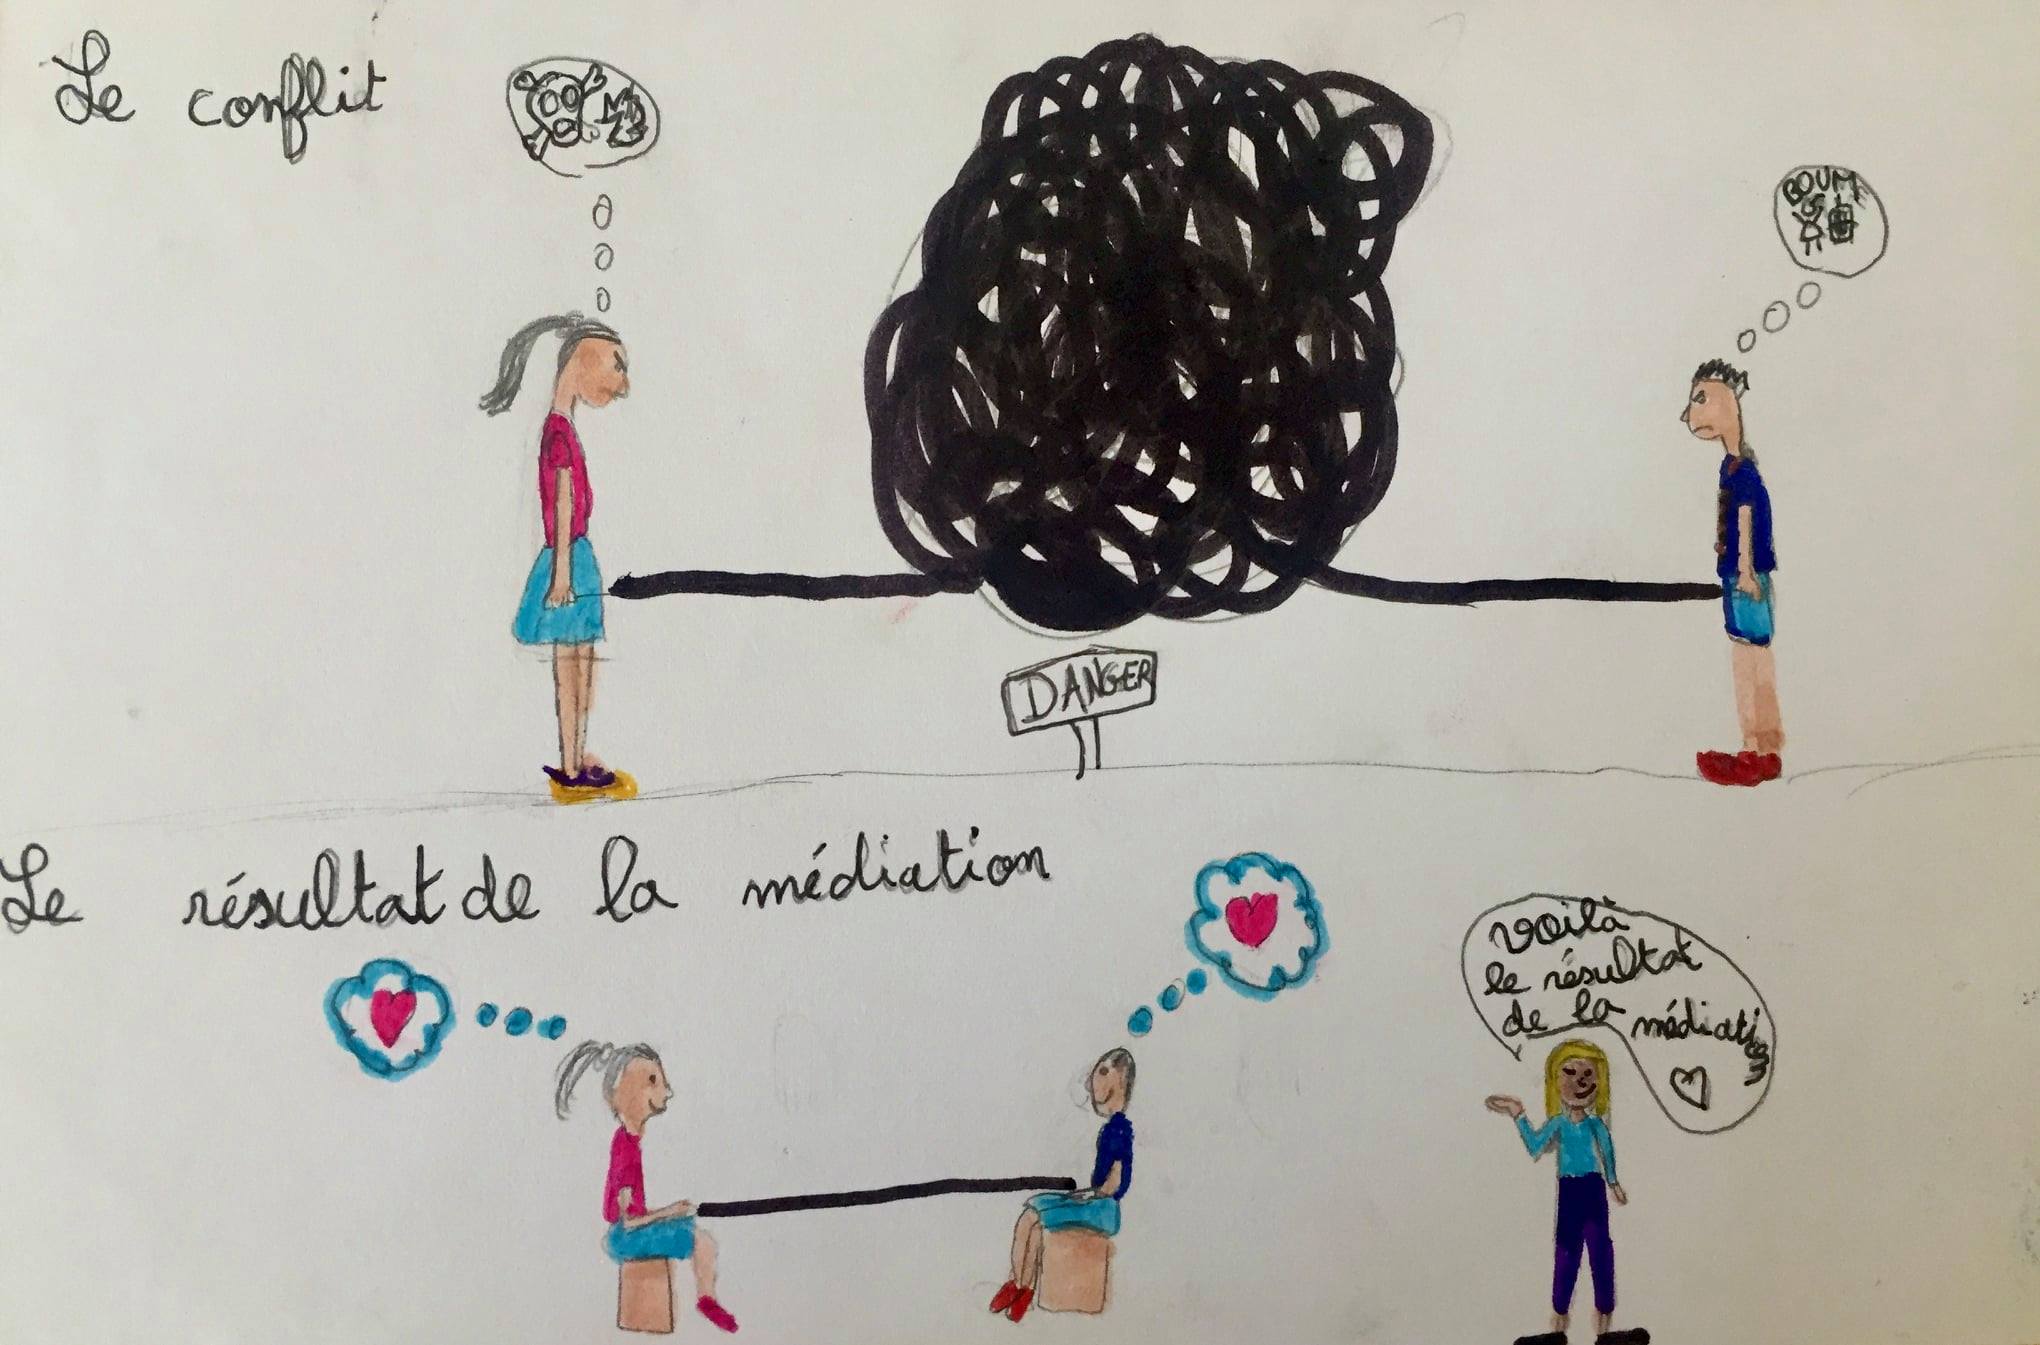 Le conflit
BOUM
DANGER
Le résultat de la médiation
voilà
le résultat
de la médiation